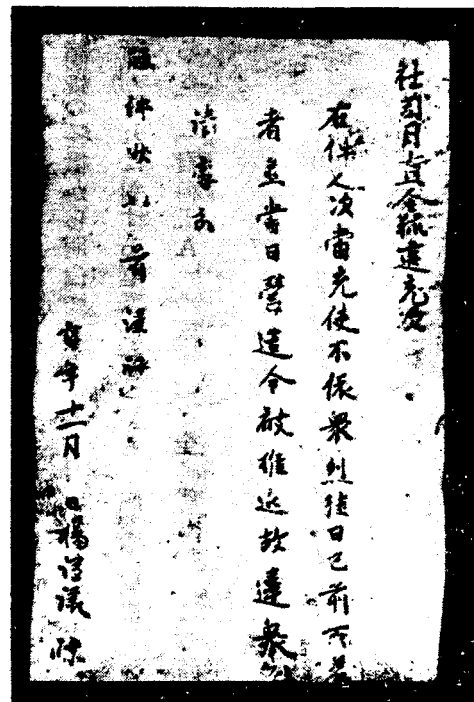 社司月直令狐建充次
右件人次當充使不依衆烈往日已前所差
者並當日營造今被推延故違衆
請處分
牒件狀如前謹牒
寅年十一月 日楊謹議牒